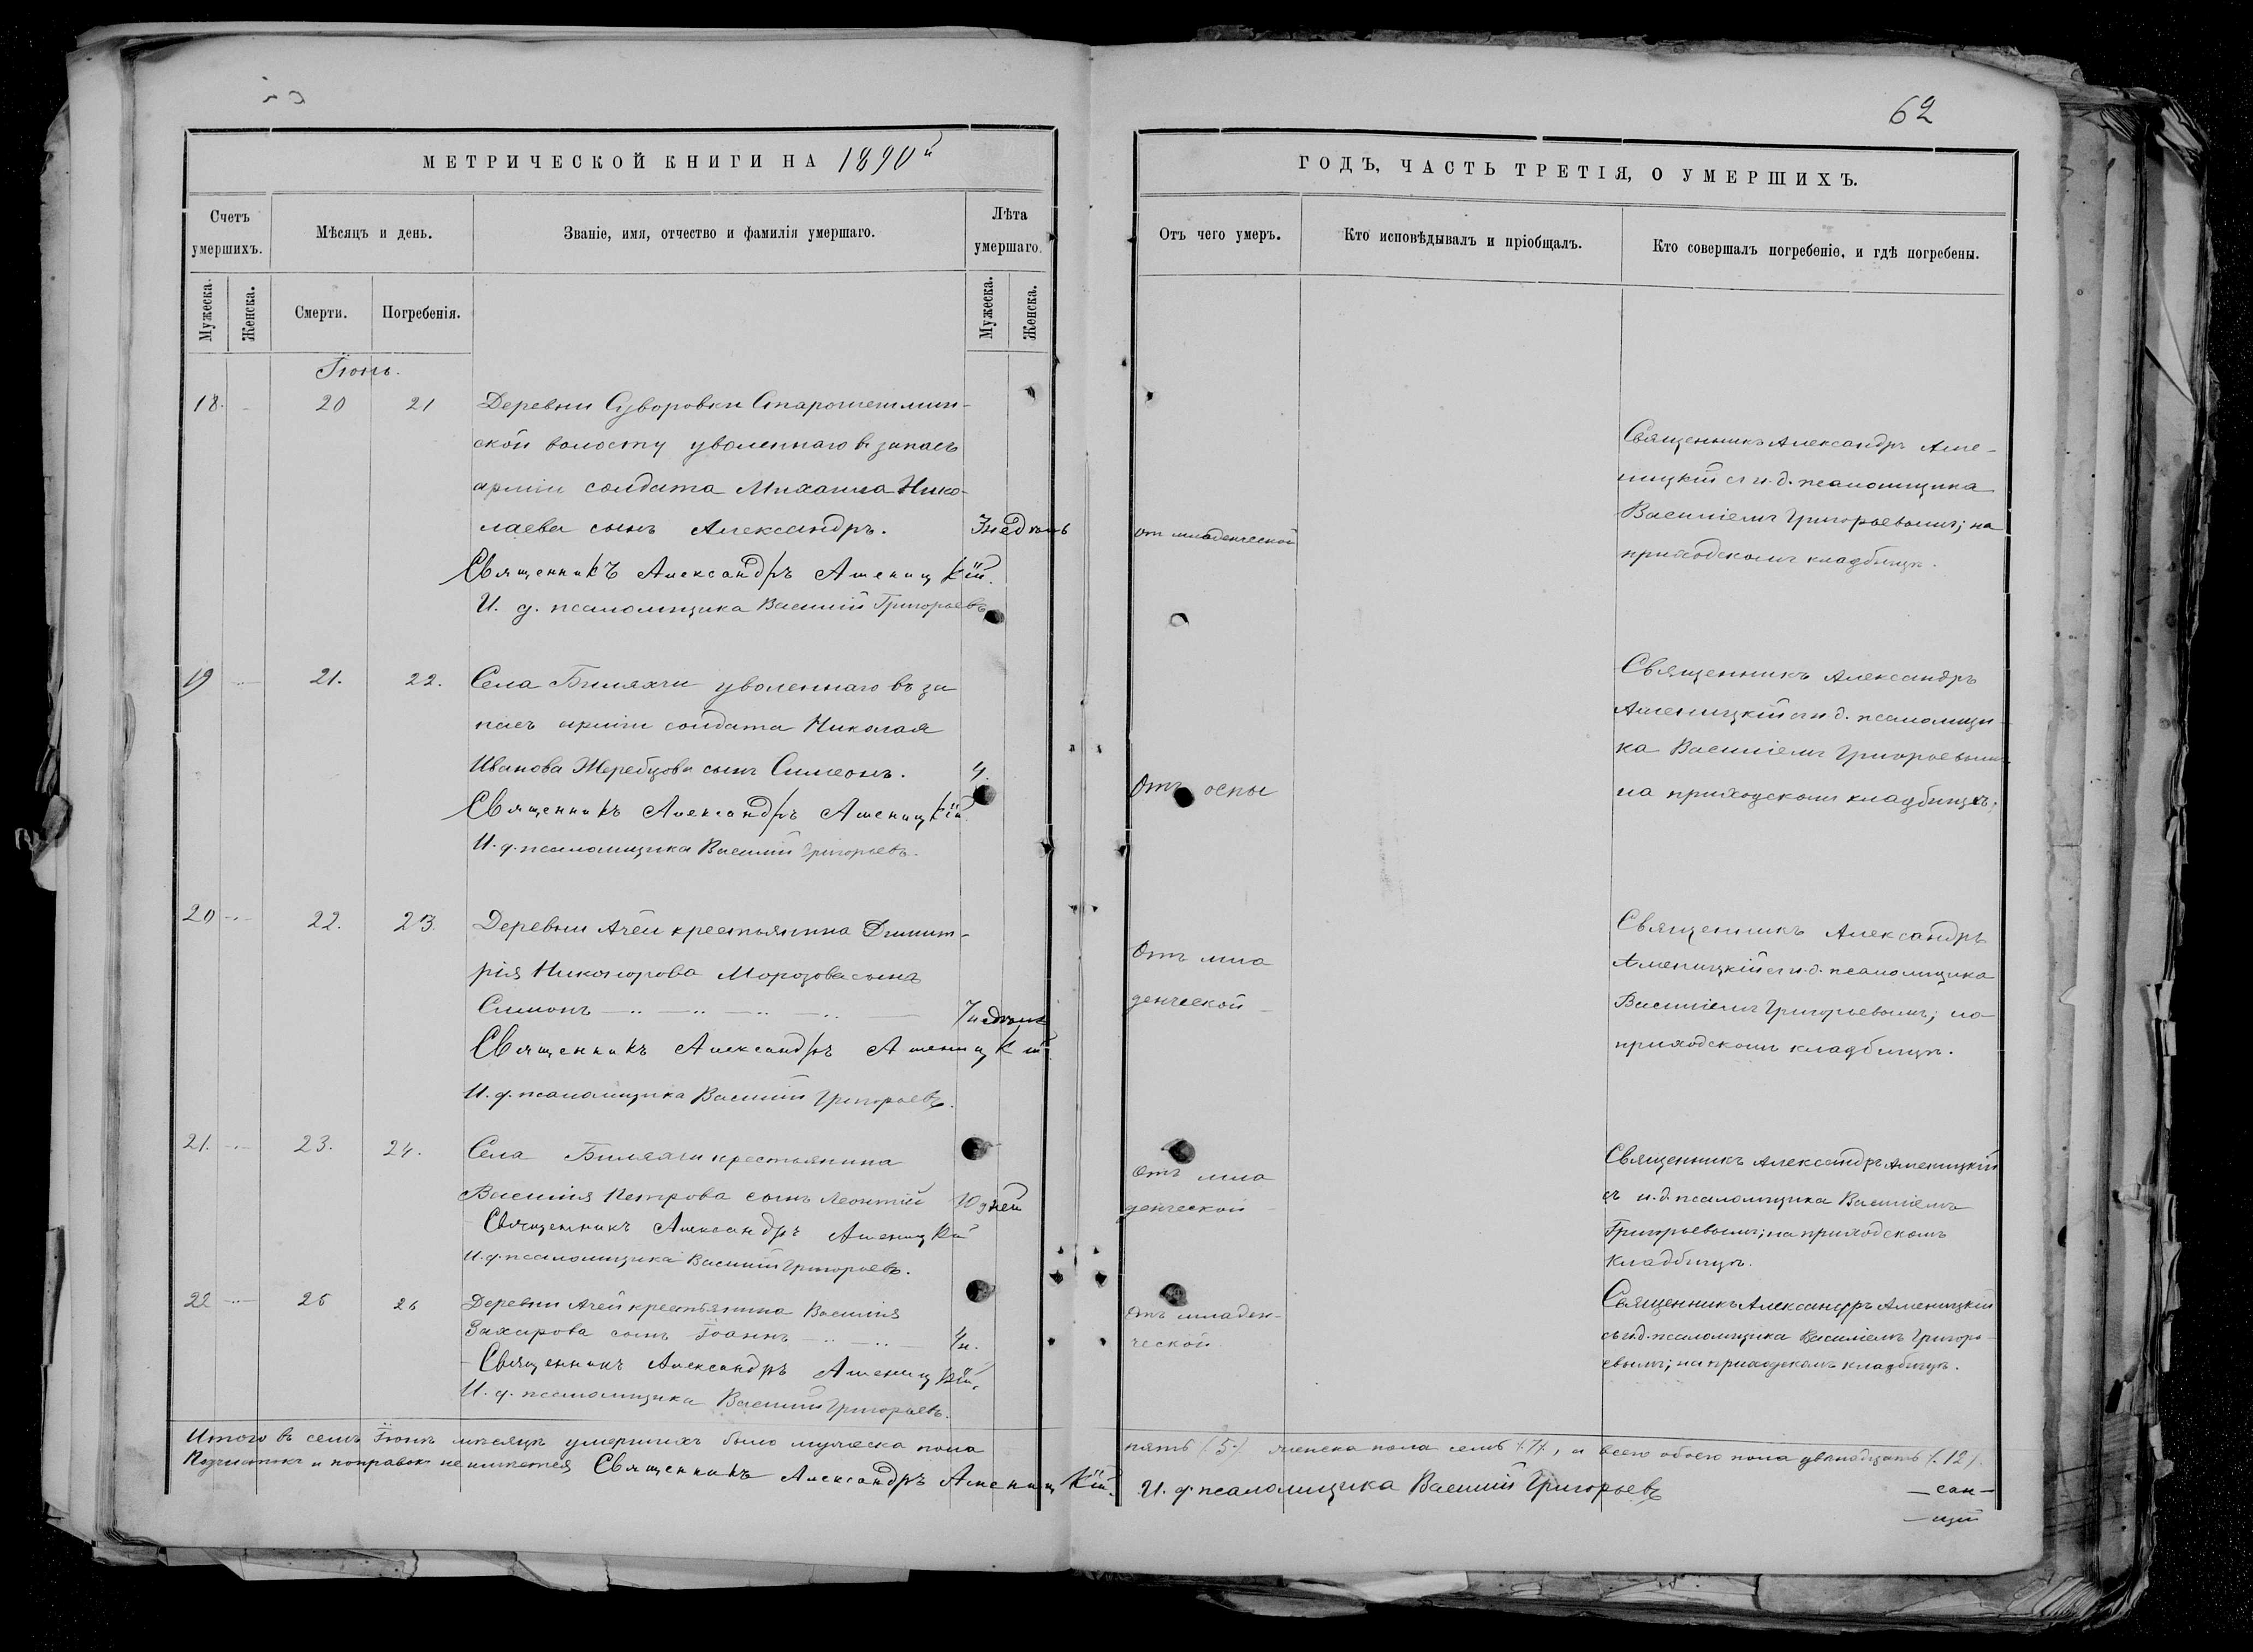 62
МЕТРИЧЕСКОЙ КНИГИ НА 1890й
ГОДЪ, ЧАСТЬ ТРЕТІЯ, О УМЕРШИХЪ.
Счетъ умершихъ.
Мѣсяцъ и день.
Званіе, имя, отчество и фамилія умершаго.
Лѣта умершаго.
Мужеска.
Женска.
Смерти.
Погребенія.
Мужеска.
Женска.
Отъ чего умеръ.
Кто исповѣдывалъ и пріобщалъ.
Кто совершалъ погребеніе, и гдѣ погребены.
Іюнь.
18. 20 21 Деревни Суворовки Старошешмин-
ской волости уволеннаго въ запасъ
арміи солдата Михаила Нико-
лаева сынъ Александръ. 3 недѣль
Священникъ Александръ Аменицкій.
И. д. псаломщика Василій Григорьевъ
от младенческой
Священникъ Александръ Аме-
ницкій съ и. д. псаломщика
Василіемъ Григорьевымъ; на
приходскомъ кладбищѣ.
19 21. 22. Села Биляхчи уволеннаго въ за
пасъ арміи солдата Николая
Иванова Жеребцова сынъ Симеонъ. 4.
Священникъ Александръ Аменицкій
И. д. псаломщика Василій Григорьевъ.
Отъ оспы
Священникъ Александръ
Аменицкій съ и д. псаломщи-
ка Василіемъ Григорьевымъ
на приходскомъ кладбищѣ.
20 22. 23. Деревни Ачей крестьянина Димит-
рія Никифорова Морозова сынъ
Симонъ 7 недѣль
Священникъ Александръ Аменицкій
И. д. псаломщика Василій Григорьевъ.
Отъ мла
денческой
Священникъ Александръ
Аменицкій съ и. д. псаломщика
Василіемъ Григорьевымъ; на
приходскомъ кладбищѣ.
21. 23. 24. Села Биляхчи крестьянина
Василія Петрова сынъ Леонтій 10 дней
Священникъ Александръ Аменицкій
И. д. псаломщика Василій Григорьевъ.
Отъ мла
денческой
Священникъ Александръ Аменицкій
съ и. д. псаломщика Василіемъ
Григорьевымъ; на приходскомъ
кладбищѣ.
22 25 26 Деревни Ачей крестьянина Василія
Захарова сынъ Іоаннъ 4 н.
Священникъ Александръ Аменицкій.
И. д. псаломщика Василій Григорьевъ.
Отъ младен-
ческой.
Священникъ Александръ Аменицкій
съ и д. псаломщика Василіемъ Григорь-
евымъ; на приходскомъ кладбищѣ.
Итого въ семъ Іюнѣ мѣсяцѣ умершихъ было мужеска пола пять (5) женска пола семь (7), а всего обоего пола двѣнадцать (12).
Подчистокъ и поправокъ не имѣется Священникъ Александръ Аменицкій.
И. д. псаломщика Василій Григорьевъ